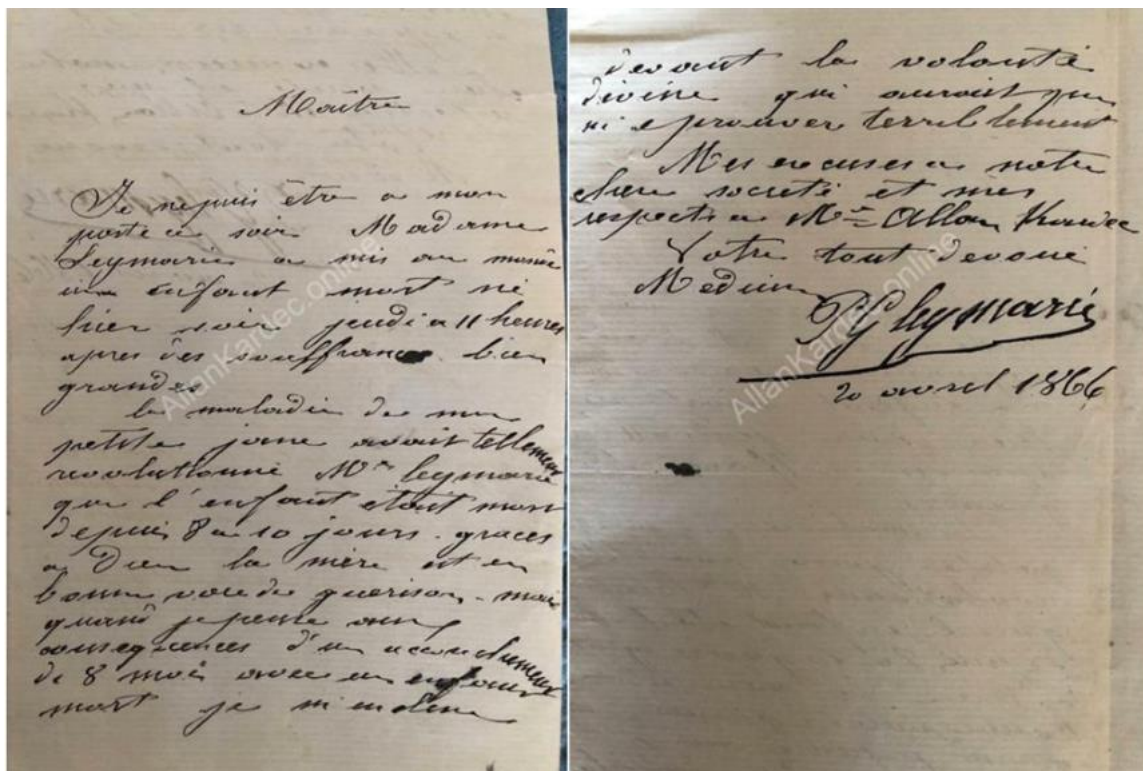 Maître
Je ne puis être a mon
poste ce soir Madame
Leymarie a mis au monde
un enfant mort né
hier soir jeudi a 11 heures
apres des souffrances bien
grandes
la maladie de ma
petite jane avait tellement
revolutionné Mme leymarie
que l'enfant etait mort
depuis 8 a 10 jours. graces
a Dieu la mère est en
bonne voie de guerison - mais
quand je pense aux
consequences d'un accouchement
de 8 mois avec un enfant
mort je m'incline
devant la volonté
divine qui aurait pu
m'eprouver terriblement
Mes excuses a notre
chere societé et mes
respects a Mr Allan Kardec
Votre tout devoué
Medium
PG leymarie
20 avril 1864
AllanKardec.online
AllanKardec.online